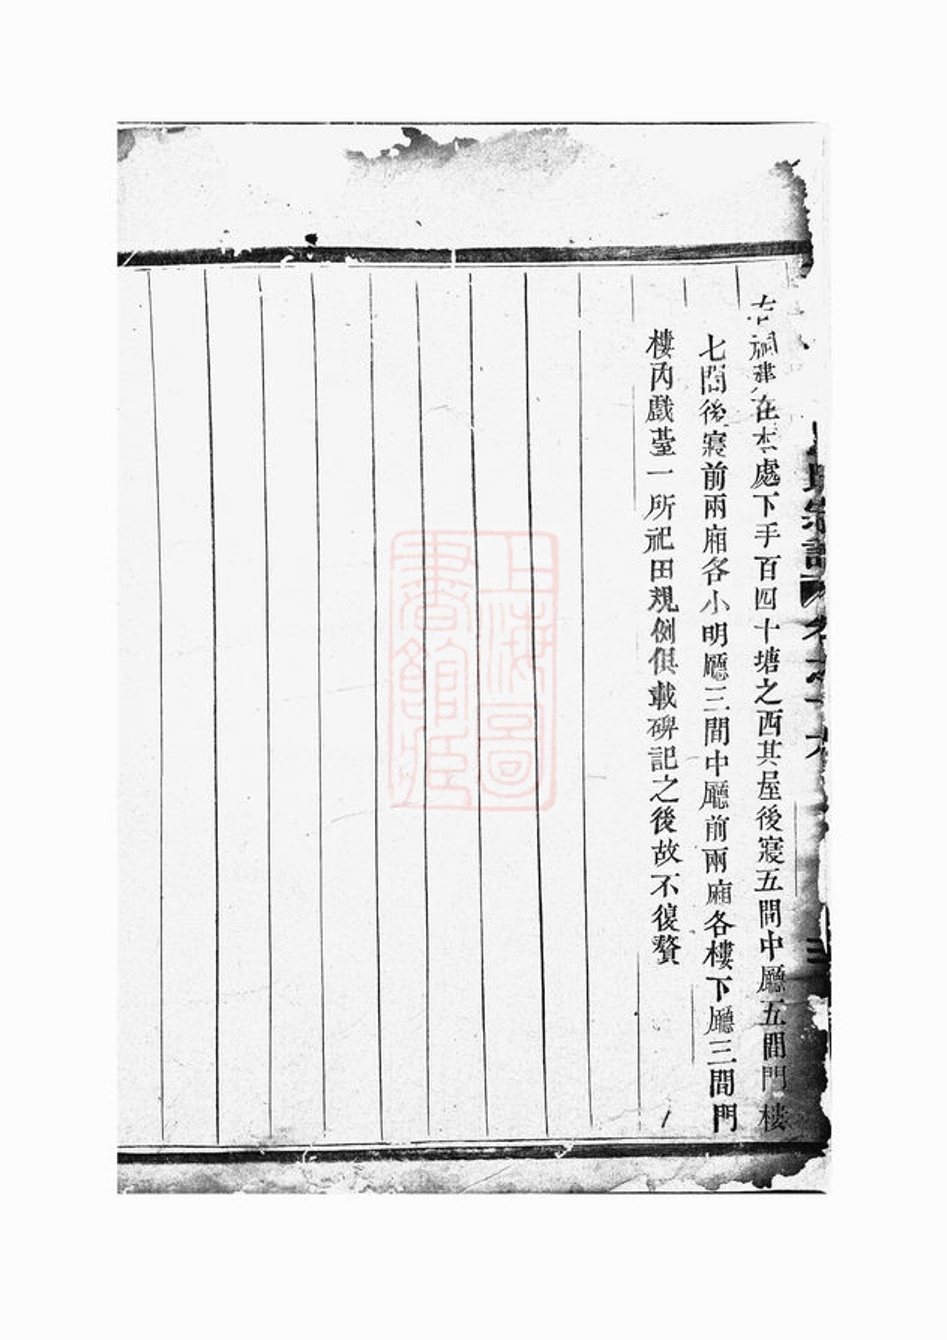 右祠建在本處下手百四十塘之西其屋後寢五間中廳五間門樓
七間後寢前兩廂各小明廳三間中廳前兩廂各樓下廳三間門
樓內戲臺一所祀田規例俱載碑記之後故不復贅
氏宗譜 卷之十
上海圖
書館藏